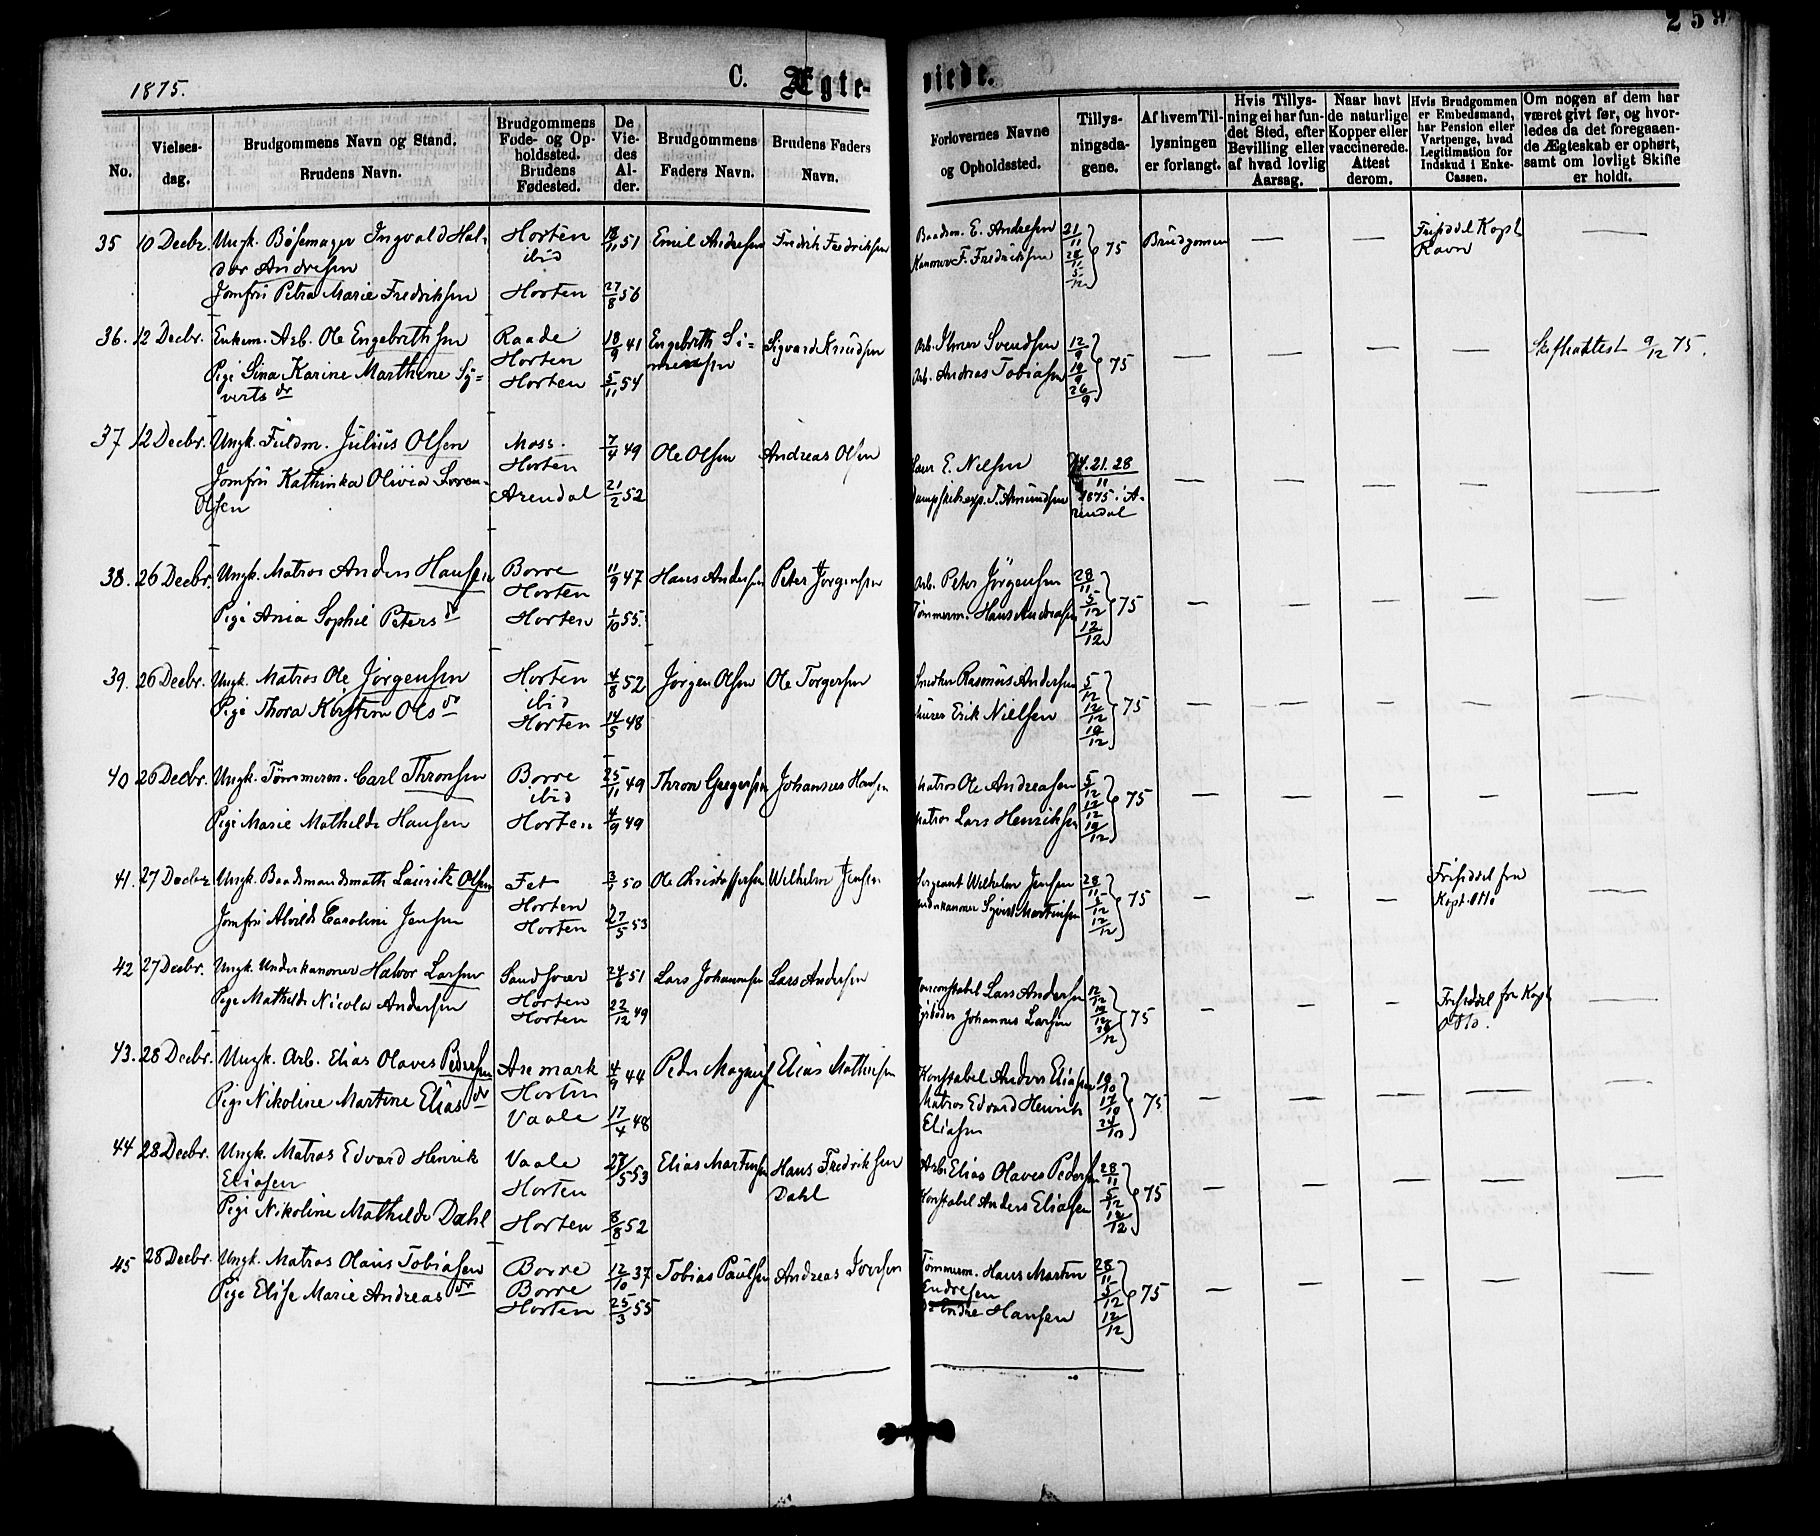 259
1875.
C. Ægte-
viede.
No.
Vielses-
dag.
Brudgommens Navn og Stand.
Brudens Navn.
Brudgommens
Føde- og Op-
holdssted.
Brudens
Fødested.
De
Vie-
des
Al-
der.
Brudgommens
Faders Navn.
Brudens Faders
Navn.
Forlovernes Navne
og Opholdssted.
Tillys-
ningsda-
gene.
Af hvem Til-
lysningen
er forlangt.
Hvis Tillys-
ning ei har fun-
det Sted, efter
Bevilling eller
af hvad lovlig
Aarsag.
Naar havt
de naturlige
Kopper eller
vaccinerede.
Attest
derom.
Hvis Brudgommen
er Embedsmand,
har Pension eller
Vartpenge, hvad
Legitimation for
Indskud i Enke-
Cassen.
Om nogen af dem har
været givt før, og hvor-
ledes da det foregaaen-
de Ægteskab er ophørt,
samt om lovligt Skifte
er holdt.
35 10 Decbr. Ungk. Bøsemager Ingvald Hal-
dor Andresen
Jomfru Petra Marie Fredriksen
Horten
ibid
Horten
18/11 51
27/8 56
Emil Andresen
Fredrik Fredriksen
Baadsm. E. Andresen
Kanoner F. Fredriksen
21/11 28/11 5/12 75
Brudgomen
Friseddel Kapt
Ravn
36. 12 Decbr. Enkem. Arb. Ole Engebrethsen
Pige Sina Karine Marthine Sy-
verts dr
Raade
Horten
Horten
18/9 41
5/11 54
Engebreth Si-
mensen
Sigvard Knudsen
Arb. Iver Svendsen
Arb. Andreas Tobiasen
12/9 19/9 26/9 75
Skifteattest 9/12 75.
37 12 Decbr. Ungk. Fuldm. Julius Olsen
Jomfru Kathinka Olivia Soren-
Olsen
Moss.
Horten
Arendal
7/4 49
21/2 52
Ole Olsen
Andreas Olsen
E. Nilsen
Dampskibsexp. T. Amundsen
14. 21. 28
11
1875 i A-
rendal
38. 26 Decbr. Ungk. Matros Anders Hansen
Pige Ania Sophie Peters dr
Borre
Horten
Horten
11/9 47
1/10 55.
Hans Andersen
Peter Jørgensen
Arb. Peter Jörgensen
Tömmerm. Hans Andreasen
28/11 5/12 12/12 75
39. 26 Decbr. Ungk. Matros Ole Jorgensen
Pige Thora Kirstine Ols dr
Horten
ibid
Horten
4/8 52
14/5 48
Jorgen Olsen
Ole Torgersen
Smeden Rasmus Andersen
Murer Erik Nielsen
5/12 12/12 19/12 75
40 26 Decbr. Ungk. Tömmerm. Carl Thronsen
Pige Marie Mathilde Hansen
Borre
ibid
Horten
25/11 49
4/9 49
Thron Gregersen
Johannes Hansen
Matros Ole Andreasen
Matros Lars Henriksen
5/12 12/12 19/12 75
41. 27 Decbr Ungk. Baadsmandsmath Lauritz Olsen
Jomfru Alvilde Caroline Jensen
Fet
Horten
Horten
3/1 50
27/5 53
Ole Christoffersen
Wilhelm Jensen
Sergeant Wilhelm Jensen
Underkanoner Syvert Martinsen
28/11 5/12 12/12 75
Friseddel fra
Kapt. Otto
42 27 Decbr. Ungk. Underkanoner Halvor Larsen
Pige Mathilde Nicola Andersen
Sandsvær
Horten
Horten
24/6 51
22/12 49
Lars Johannesen
Lars Andersen
Lars Andersen
Johannes Larsen
12/12 19/12 26/12 75
Friseddel fra Kapt
Otto.
43. 28 Decbr. Ungk. Arb. Elias Olaves Pedersen
Pige Nikoline Martine Elias dr
Aremark
Horten
Vaale
4/9 44
17/4 48
Peder Magnus
Elias Mathisen
Konstabel Anders Eliasen
Matros Edvard Henrik
Eliasen
10/10 17/10 24/10 75
44 28 Decbr. Ungk. Matros Edvard Henrik
Eliasen
Pige Nikoline Mathilde Dahl
Vaale
Horten
Horten
27/5 53
8/8 52
Elias Martinsen
Hans Fredriksen
Dahl
Arb. Elias Olaves Pedersen
Konstabel Anders Eliasen
28/11 5/12 12/12 75
45 28 Decbr. Ungk. Matros Olaus Tobiasen
Pige Elise Marie Andreas dr
Borre
Borre
Horten
12/10 37
25/3 55
Tobias Paulsen
Andreas Iversen
Tömmerm. Hans Martin
Endresen
do Endre Hansen
28/11 5/12 12/12 75